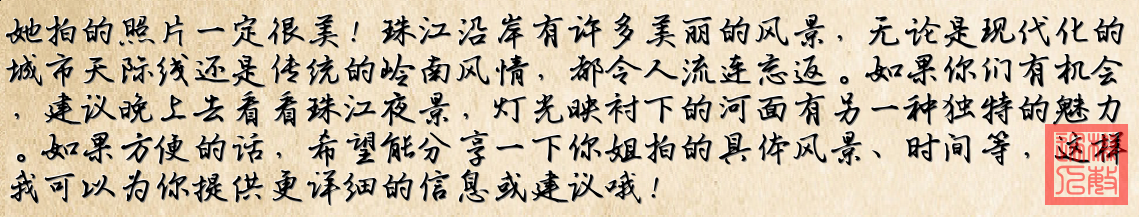 她拍的照片一定很美！珠江沿岸有许多美丽的风景，无论是现代化的
城市天际线还是传统的岭南风情，都令人流连忘返。如果你们有机会
，建议晚上去看看珠江夜景，灯光映衬下的河面有另一种独特的魅力
。如果方便的话，希望能分享一下你姐拍的具体风景、时间等，这样
我可以为你提供更详细的信息或建议哦！